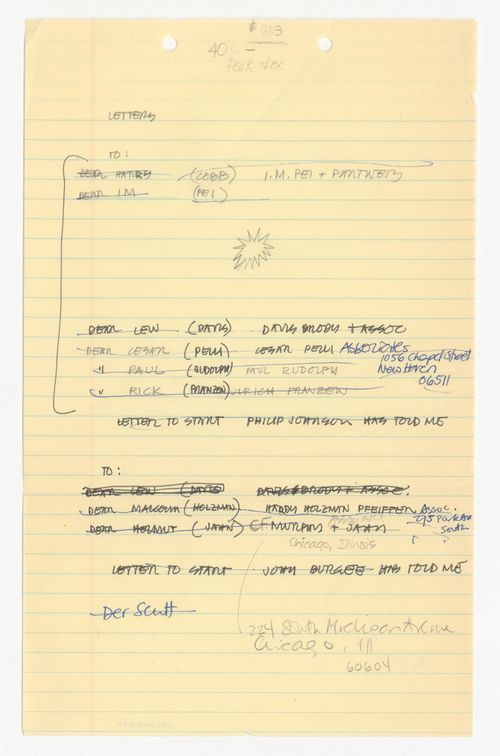 $ 803
40 -
Park + Lex
LETTERS
TO:
DEAR HARRY (COBB) I.M. PEI + PARTNERS
DEAR IM (PEI)
DEAR LEW (DAVIS) DAVIS BRODY + ASSOC
DEAR CESAR (PELLI) CESAR PELLI Associates
1056 Chapel Street
" PAUL (RUDOLPH) PAUL RUDOLPH New Haven
06511
" RICK (FRANZEN) ULRICH FRANZEN
LETTER TO START PHILIP JOHNSON HAS TOLD ME
TO:
DEAR LEW (DAVIS DAVIS BRODY + ASSOC.
DEAR MALCOLM (HOLZMAN) HARDY HOLZMAN PFEIFFER Assoc.
295 Park Ave
South
DEAR HELMUT (JAHN) CF MURPHY + JAHN
Chicago, Illinois
LETTER TO START JOHN BURGEE HAS TOLD ME
Der Scutt
224 South Michigan Avenue
Chicago, Ill
60604